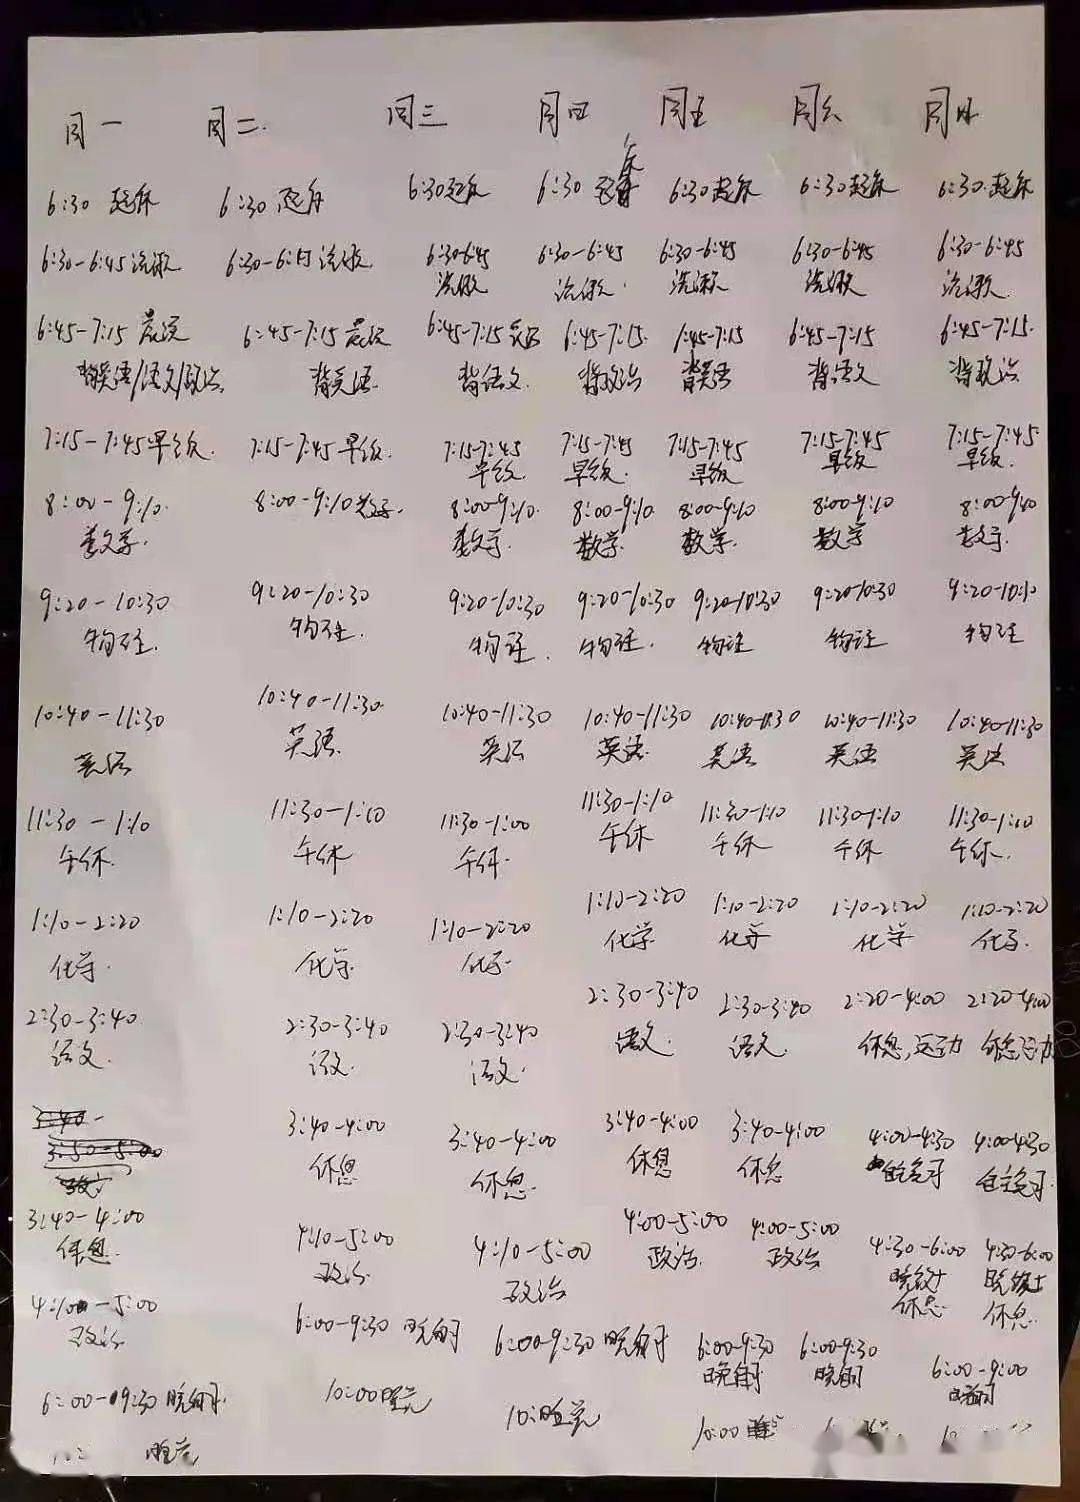 周一 周二. 周三 周四 周五 周六 周日
6:30 起床 6:30 起床 6:30起床 6:30 起床 6:30起床 6:30起床 6:30.起床
6:30-6:45洗漱 6:30-6:45洗漱 6:30-6:45 6:30-6:45 6:30-6:45 6:30-6:45 6:30-6:45
洗漱 洗漱. 洗漱 洗漱 洗漱
6:45-7:15 晨读 6:45-7:15 晨读 6:45-7:15晨读 6:45-7:15. 6:45-7:15 6:45-7:15 6:45-7:15.
背英语/语文/政治 背英语. 背语文. 背政治 背英语 背语文 背政治
7:15-7:45早饭. 7:15-7:45早饭. 7:15-7:45 7:15-7:45 7:15-7:45 7:15-7:45 7:15-7:45
早饭. 早饭. 早饭 早饭 早饭.
8:00-9:10. 8:00-9:10数学. 8:00-9:10. 8:00-9:10. 8:00-9:10 8:00-9:10 8:00-9:10
数学. 数学. 数学. 数学. 数学 数学.
9:20-10:30 9:20-10:30 9:20-10:30 9:20-10:30 9:20-10:30 9:20-10:30 9:20-10:30
物理. 物理. 物理. 物理. 物理 物理 物理
10:40-11:30 10:40-11:30 10:40-11:30 10:40-11:30 10:40-11:30 10:40-11:30 10:40-11:30
英语 英语. 英语 英语. 英语 英语 英语
11:30-1:10 11:30-1:10 11:30-1:00 11:30-1:10 11:30-1:10 11:30-1:10 11:30-1:10
午休. 午休 午休. 午休 午休 午休 午休.
1:10-2:20 1:10-2:20 1:10-2:20 1:10-2:20 1:10-2:20 1:10-2:20 1:10-2:20
化学. 化学. 化学. 化学. 化学 化学 化学.
2:30-3:40 2:30-3:40 2:30-3:40 2:30-3:40 2:30-3:40 2:20-4:00 2:20-4:00
语文. 语文. 语文. 语文. 语文. 休息,运动 休息,运动
3:40-
3:50-5:00 3:40-4:00 3:40-4:00 3:40-4:00 3:40-4:00 4:00-4:30 4:00-4:30
政治 休息 休息. 休息 休息 自主复习 自主复习.
3:40-4:00 4:10-5:00 4:10-5:00 4:00-5:00 4:00-5:00 4:30-6:00 4:30-6:00
休息. 政治. 政治 政治. 政治 晚饭+ 晚饭+
休息 休息.
4:10-5:00 6:00-9:30 晚自习 6:00-9:30晚自习 6:00-9:30 6:00-9:30 6:00-9:00
政治 晚自习 晚自习 晚自习
6:00-9:30晚自习. 10:00睡觉 10:睡觉 10:00
睡觉